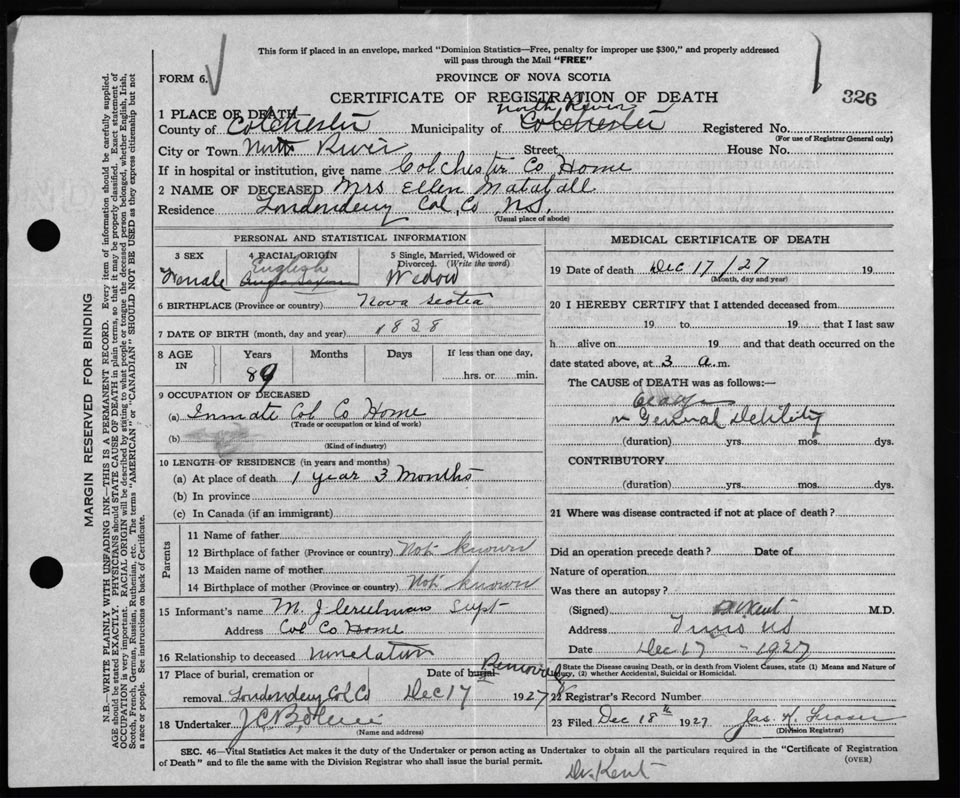 This form if placed in an envelope, marked "Dominion Statistics—Free, penalty for improper use $300," and properly addressed
will pass through the Mail "FREE"
FORM 6.
PROVINCE OF NOVA SCOTIA
CERTIFICATE OF REGISTRATION OF DEATH
326
1 PLACE OF DEATH
North River
County of Colchester Municipality of Colchester Registered No.
(For use of Registrar General only)
City or Town North River Street House No.
If in hospital or institution, give name Colchester Co Home
2 NAME OF DECEASED Mrs Ellen Matatall
Residence Londonderry Col, Co N.S.
(Usual place of abode)
PERSONAL AND STATISTICAL INFORMATION
3 SEX
Female
4 RACIAL ORIGIN
English
5 Single, Married, Widowed or
Divorced. (Write the word)
Widow
6 BIRTHPLACE (Province or country) Nova Scotia
7 DATE OF BIRTH (month, day and year) 1838
8 AGE IN
Years Months Days If less than one day,
89 hrs. or min.
9 OCCUPATION OF DECEASED
(a) Inmate Col Co Home
(Trade or occupation or kind of work)
(b)
(Kind of industry)
10 LENGTH OF RESIDENCE (in years and months)
(a) At place of death 1 year 3 Months
(b) In province
(c) In Canada (if an immigrant)
Parents
11 Name of father
12 Birthplace of father (Province or country) Not known
13 Maiden name of mother
14 Birthplace of mother (Province or country) Not known
15 Informant's name M. J Creelman Supt
Address Col Co Home
16 Relationship to deceased
17 Place of burial, cremation or
removal Londonderry Col Co
Date of burial Removal
Dec 17 1927
18 Undertaker
(Name and address)
MEDICAL CERTIFICATE OF DEATH
19 Date of death Dec 17/27 19
(Month, day and year)
20 I HEREBY CERTIFY that I attended deceased from
19 to 19 that I last saw
h alive on 19 and that death occurred on the
date stated above, at 3 a.m.
The CAUSE of DEATH was as follows:—
General Debility
(duration) yrs. mos. dys.
CONTRIBUTORY
(duration) yrs. mos. dys.
21 Where was disease contracted if not at place of death?
Did an operation precede death? Date of
Nature of operation
Was there an autopsy?
(Signed) Kent M.D.
Address Truro NS
Date Dec 17 - 1927
State the Disease causing Death, or in death from Violent Causes, state (1) Means and Nature of
Injury, (2) whether Accidental, Suicidal or Homicidal.
22 Registrar's Record Number
23 Filed Dec 18th 1927 Jas. A. Fraser
(Division Registrar)
SEC. 46—Vital Statistics Act makes it the duty of the Undertaker or person acting as Undertaker to obtain all the particulars required in the "Certificate of Registration
of Death" and to file the same with the Division Registrar who shall issue the burial permit.
(OVER)
Dr. Kent
MARGIN RESERVED FOR BINDING
N.B.—WRITE PLAINLY WITH UNFADING INK—THIS IS A PERMANENT RECORD. Every item of information should be carefully supplied.
AGE should be stated EXACTLY. PHYSICIANS should STATE CAUSE OF DEATH in plain terms, so that it may be properly classified. Exact statement of
OCCUPATION is very important. RACIAL ORIGIN will be described by stating to what people or tongue the deceased person belonged, whether English, Irish,
Scotch, French, German, Russian, Ruthenian, etc. The terms "AMERICAN" or "CANADIAN" SHOULD NOT BE USED as they express citizenship but not
a race or people. See instructions on back of Certificate.